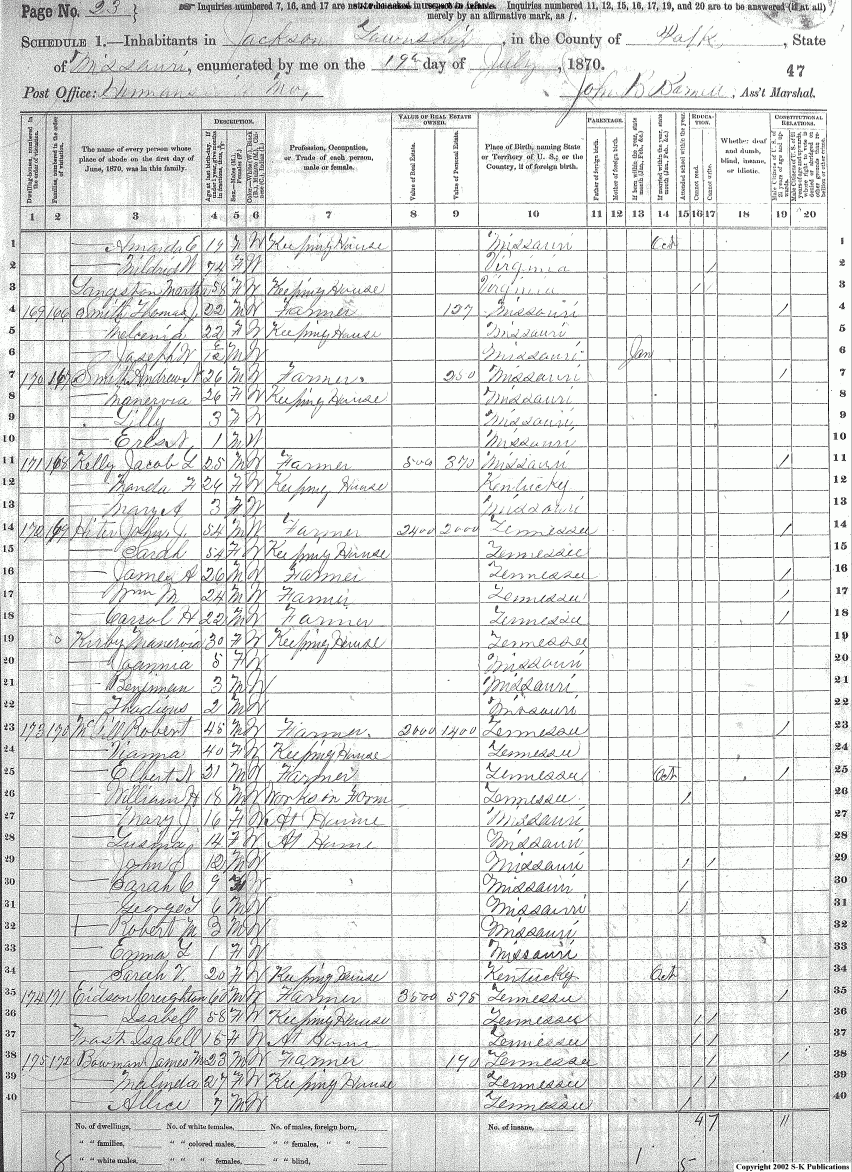 Page No. 23
Inquiries numbered 7, 16, and 17 are not to be asked in respect to infants. Inquiries numbered 11, 12, 15, 16, 17, 19, and 20 are to be answered (if at all)
merely by an affirmative mark, as /.
SCHEDULE 1.—Inhabitants in Jackson Township, in the County of Polk, State
of Missouri, enumerated by me on the 19th day of July, 1870.
47
Post Office: Mo, John, Ass't Marshal.
DESCRIPTION. VALUE OF REAL ESTATE OWNED. PARENTAGE. EDUCATION. CONSTITUTIONAL RELATIONS.
Dwelling-houses, numbered in the order of visitation. Families, numbered in the order of visitation. The name of every person whose place of abode on the first day of June, 1870, was in this family. Profession, Occupation, or Trade of each person, male or female. Value of Real Estate. Value of Personal Estate. Place of Birth, naming State or Territory of U. S.; or the Country, if of foreign birth. Father of foreign birth. Mother of foreign birth. Attended school within the year. Cannot read. Cannot write. Whether deaf and dumb, blind, insane, or idiotic.
1 2 3 4 5 6 7 8 9 10 11 12 13 14 15 16 17 18 19 20
1 — Amanda C 19 F W Keeping House Missouri Oct 1
2 — Mildrid W 74 F W Virginia / 2
3 Langston Martha 58 F W Keeping House Virginia / / 3
4 169 166 Smith Thomas J 22 M W Farmer 127 Missouri / 4
5 — 22 F W Keeping House Missouri 5
6 — Joseph W M W Missouri Jan 6
7 170 167 Smith Andrew N 26 M W Farmer 250 Missouri / 7
8 — Manervia 26 F W Keeping House Missouri 8
9 — Lilly 3 F W Missouri 9
10 — 1 M W Missouri 10
11 171 168 Kelly Jacob L 25 M W Farmer 500 370 Missouri / 11
12 — F 26 F W Keeping House Kentucky 12
13 — Mary A 3 F W Missouri 13
14 172 169 Hiter John J 54 M W Farmer 2400 2000 Tennessee / 14
15 — Sarah 54 F W Keeping House Tennessee 15
16 — James A 26 M W Farmer Tennessee / 16
17 — Wm M 24 M W Farmer Tennessee / 17
18 — Carrol H 22 M W Farmer Tennessee / 18
19 Kirby Manervia 30 F W Keeping House Tennessee 19
20 — Joannia 5 F W Missouri 20
21 — Beniman 3 M W Missouri 21
22 — Thadious 2 M W Missouri 22
23 173 170 Robert 45 M W Farmer 2000 1400 Tennessee / 23
24 — Vianna 40 F W Keeping House Tennessee 24
25 — Elbert N 21 M W Farmer Tennessee Oct / 25
26 — William H 18 M W Works on Farm Tennessee / 26
27 — Mary J 16 F W At Home Missouri 27
28 — 14 F W At Home Missouri 28
29 — John S 12 M W Missouri / / 29
30 — Sarah C 9 F W Missouri / 30
31 — George T 6 M W Missouri / 31
32 — Robert M 3 M W Missouri 32
33 — Emma L 1 F W Missouri 33
34 — Sarah V 20 F W Keeping House Kentucky Oct 34
35 174 171 Eidson Creighton 60 M W Farmer 3500 575 Tennessee / 35
36 — Isabell 58 F W Keeping House Tennessee / / 36
37 Isabell 15 F W At Home Tennessee / / 37
38 175 172 Bowman James M 23 M W Farmer 190 Tennessee / / 38
39 — Malinda 27 F W Keeping House Tennessee / / 39
40 — Allice 7 M W Tennessee / 40
No. of dwellings, No. of white females, No. of males, foreign born, No. of insane, 4 7 11
" " families, " " colored males, " " females, " "
" " white males, " " " females, " " blind, 1 5
Copyright 2002 S-K Publications